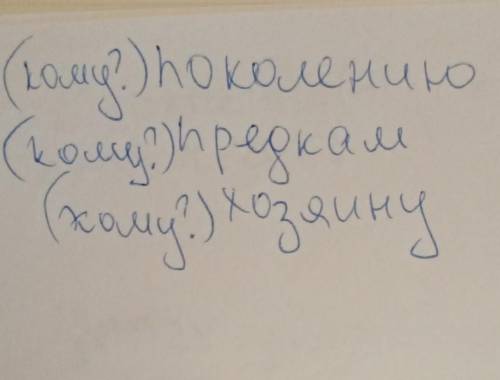 (кому?) поколению
(кому?) предкам
(кому?) хозяину